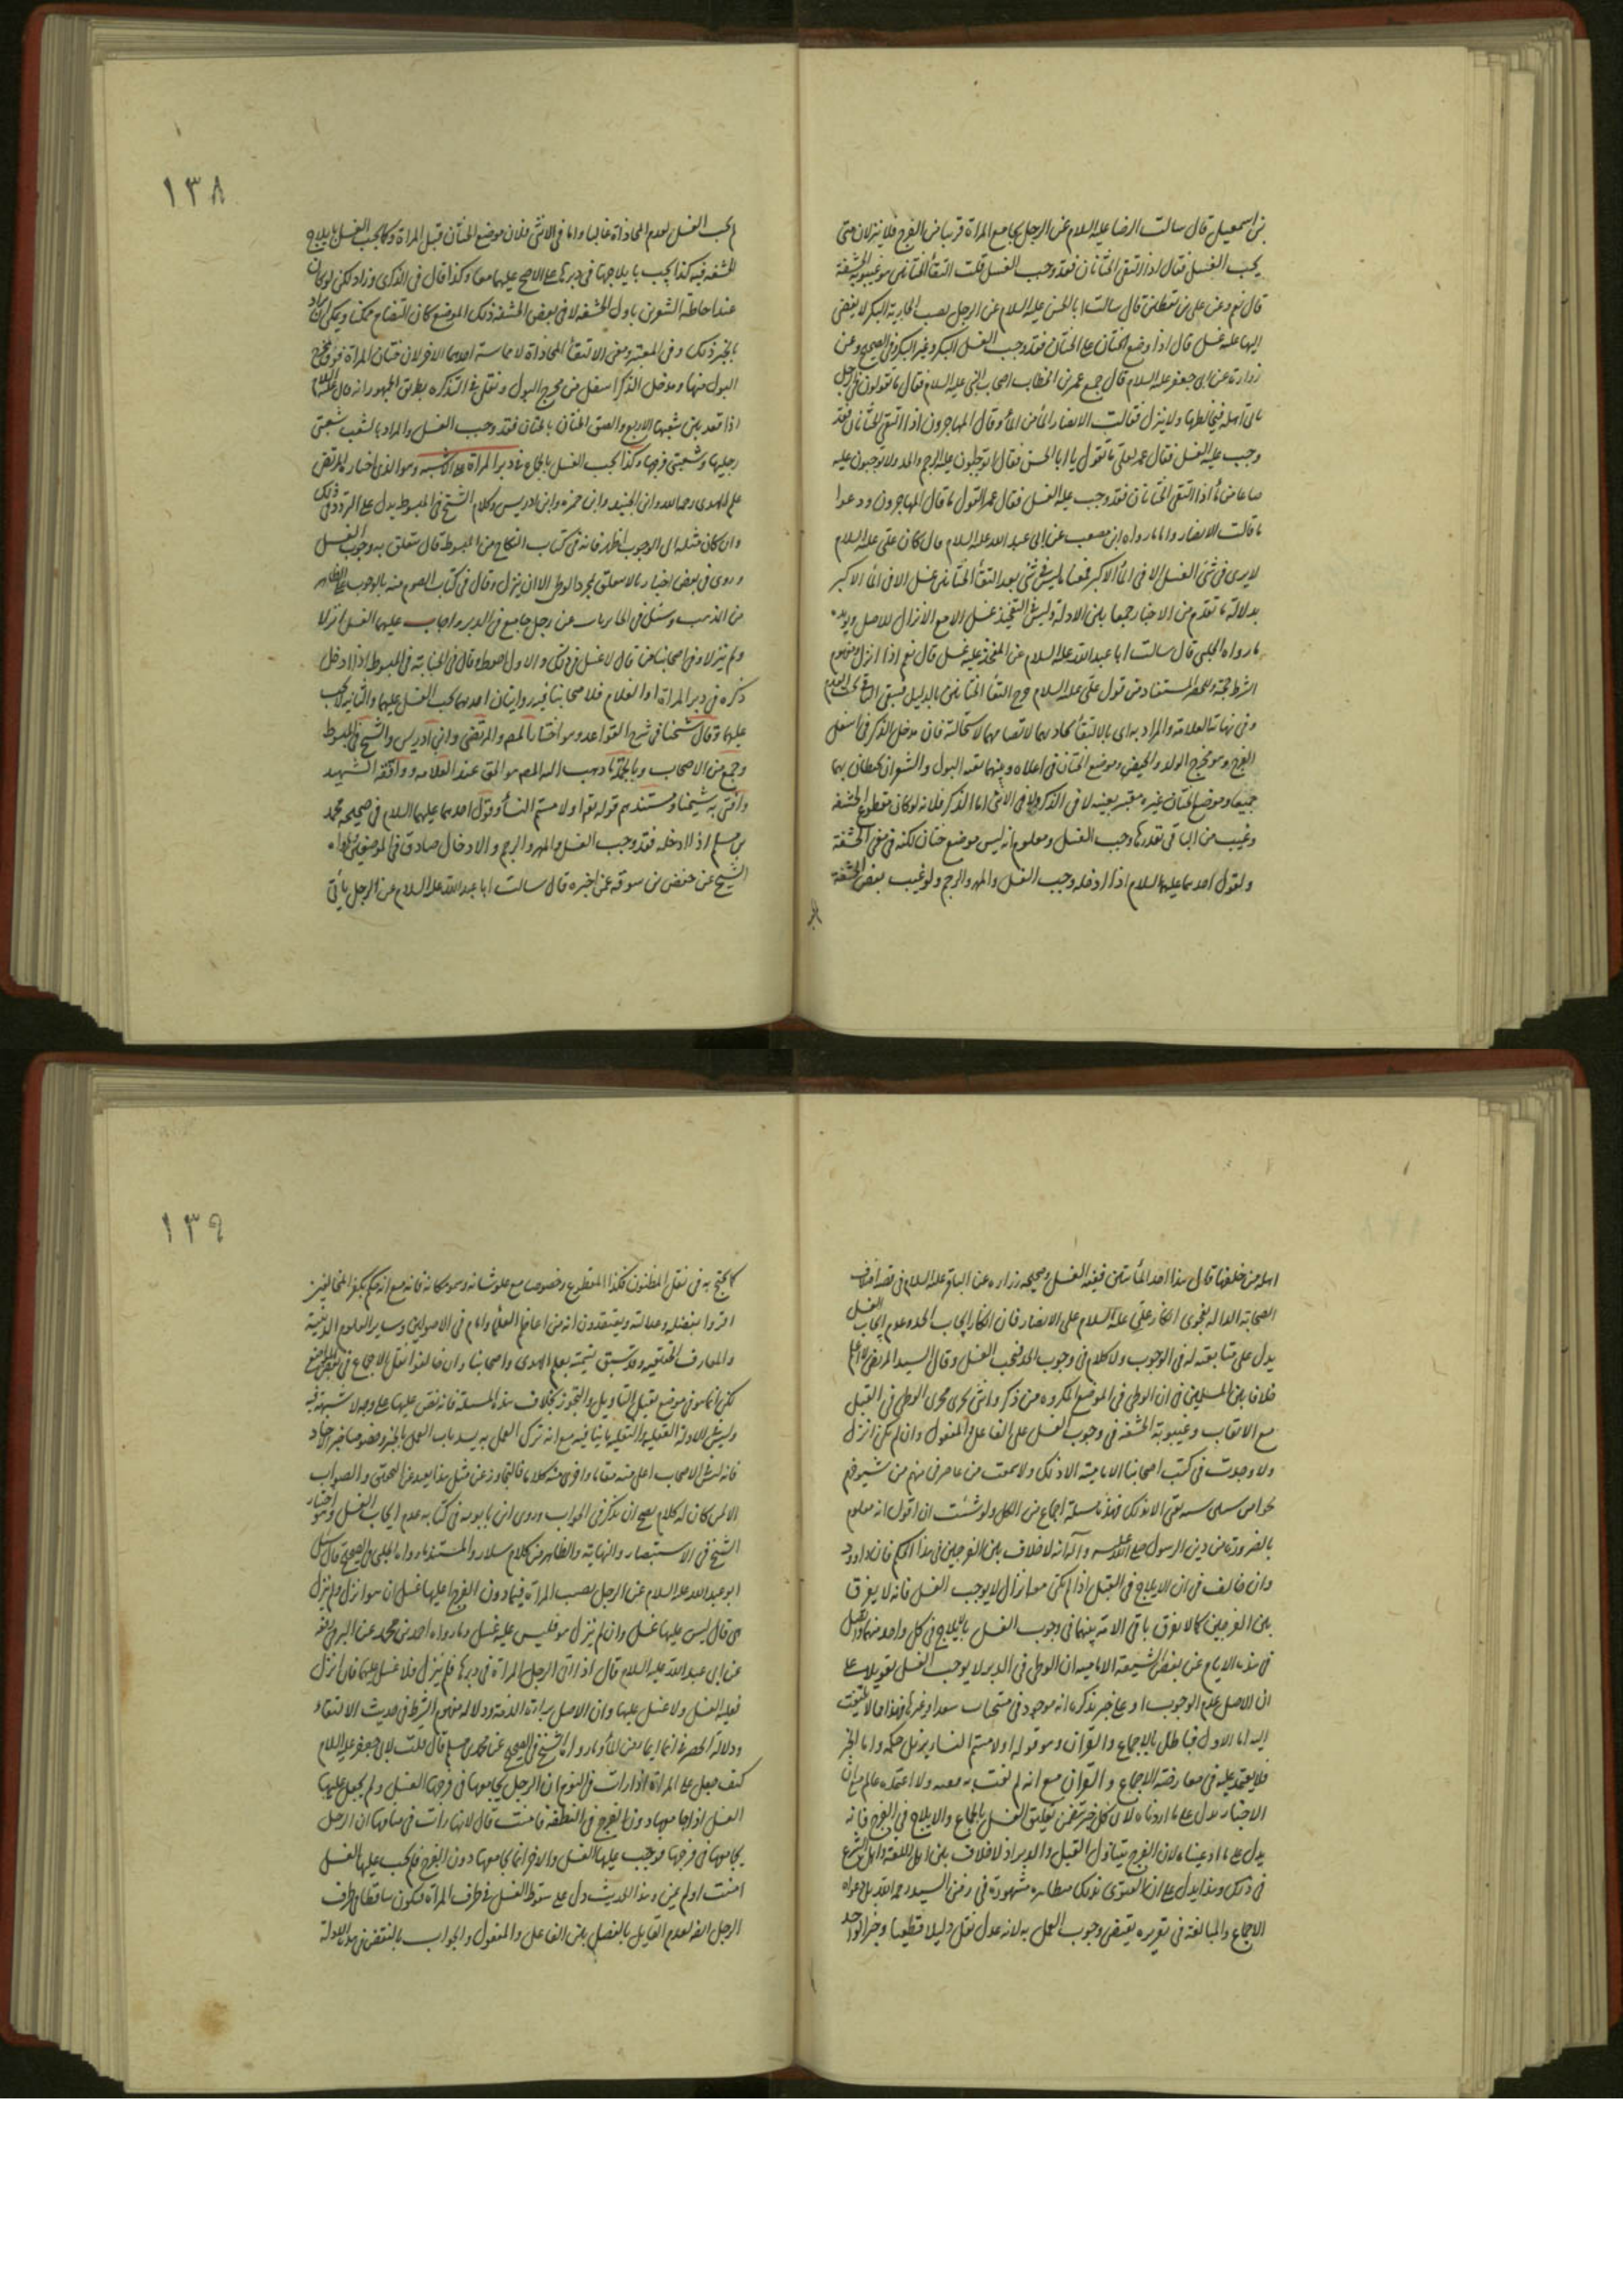 بن اسمعيل قال سالت الرضا عليه السلام عن الرجل يجامع المراة قريبا من الفرج فلا ينزلان متى
يجب الغسل فقال اذا التقى الختانان فقد وجب الغسل قلت التقاء الختانين هو غيبوبة الحشفة
قال نعم وعن علي بن يقطين قال سالت ابا الحسن عليه السلام عن الرجل يصيب الجارية البكر لا يفضي
اليها عليه غسل قال اذا وضع الختان على الختان فقد وجب الغسل البكر وغير البكر وفي الصحيح وعن
زرارة عن ابي جعفر عليه السلام قال جمع عمر بن الخطاب اصحاب النبي عليه السلام فقال ما تقولون في الرجل
ياتي اهله فيخالطها ولا ينزل فقالت الانصار الماء من الماء وقال المهاجرون اذا التقى الختانان فقد
وجب عليه الغسل فقال عمر لعلي ما تقول يا ابا الحسن فقال اتوجبون عليه الرجم والحد ولا توجبون عليه
صاعا من ماء اذا التقى الختانان فقد وجب عليه الغسل فقال عمر القول ما قال المهاجرون ودعوا
ما قالت الانصار واما ما رواه ابن مصعب عن ابي عبد الله عليه السلام قال كان علي عليه السلام
لا يرى في شئ الغسل الا في الماء الاكبر فمعناه ليس في شئ بعد التقاء الختانين غسل الا في الماء الاكبر
بدلالة ما تقدم من الاخبار جمعا بين الادلة وليس في التفخيذ غسل الا مع الانزال للاصل ويؤيده
ما رواه الحلبي قال سالت ابا عبد الله عليه السلام عن المفخذ عليه غسل قال نعم اذا انزل ومفهوم
الشرط حجة وللحصر المستفاد من قول علي عليه السلام خرج التقاء الختانين بالدليل فبقي الباقي تحت العدم
وفي نهاية العلامة والمراد به اي بالالتقاء تحاذيهما لا تضامهما لاستحالته فان مدخل الذكر في اسفل
الفرج وهو مخرج الولد والحيض وموضع الختان في اعلاه وبينهما ثقبة البول والشفران يحيطان بهما
جميعا وموضع الختان غيره معتبر بعينه لا في الذكر ولا في الانثى اما الذكر فلانه لو كان مقطوع الحشفة
وغيب من الباقي بقدرها وجب الغسل ومعلوم انه ليس موضع ختان لكنه في معنى الحشفة
ولقول احدهما عليهما السلام اذا ادخله وجب الغسل والمهر والرجم ولو غيب بعض الحشفة
١٣٨
لم يجب الغسل لعدم المحاذاة غالبا واما في الانثى فلان موضع الختان قبل المراة وكما يجب الغسل بايلاج
الحشفة فيه كذا يجب بايلاجها في دبرها على الاصح عليهما معا وكذا قال في الذكرى وزاد لكن لو كان
عند احاطة الشفرين باول الحشفة لاقى بعض الحشفة ذلك الموضع كان التضام ممكنا ويمكن ان يراد
بالخبر ذلك وفي المعتبر ومعنى الالتقاء المحاذاة لا مماسة احدهما الاخر لان ختان المراة فوق مخرج
البول منها ومدخل الذكر اسفل من مخرج البول ونقل في التذكرة بطريق الجمهور انه قال عليه السلام
اذا قعد بين شعبها الاربع والصق الختان بالختان فقد وجب الغسل والمراد بالشعب شعبتي
رجليها وشعبتي فرجها وكذا يجب الغسل بالجماع في دبر المراة على الاشبه وهو الذي اختاره المرتضى
علم الهدى رحمه الله وابن الجنيد وابن حمزة وابن ادريس وكلام الشيخ في المبسوط يدل على التردد في ذلك
وان كان مثله الى الوجوب اظهر فانه في كتاب النكاح من المبسوط قال يتعلق به وجوب الغسل
وروى في بعض اخبارنا لا يتعلق بمجرد الوطي الا ان ينزل وقال في كتاب الصوم منه بالوجوب على الظاهر
من المذهب وسئل في الحائريات عن رجل جامع في الدبر فاجاب عليهما الغسل انزلا
ولم ينزلا وفي اصحابنا من قال لا غسل في ذلك والاول احوط وقال في الجنابة في المبسوط اذا ادخل
ذكره في دبر المراة او الغلام فلاصحابنا فيه روايتان احديهما يجب الغسل عليهما والثانية لا يجب
عليهما وقال شيخنا في شرح القواعد وهو اختيار المص والمرتضى وابن ادريس والشيخ في المبسوط
وجمع من الاصحاب وبالجملة ما ذهب اليه المص هو الحق عند العلامة ووافقه الشهيد
وافتى به شيخنا ومستندهم قوله تعالى او لامستم النساء وقول احدهما عليهما السلام في صحيحة محمد
بن مسلم اذا ادخله فقد وجب الغسل والمهر والرجم والادخال صادق في الموضعين وما رواه
الشيخ عن حفص بن سوقة عمن اخبره قال سالت ابا عبد الله عليه السلام عن الرجل ياتي
اهله من خلفها قال هذا احد الماتيين فيه الغسل وصحيحة زرارة عن الباقر عليه السلام في قصة اختلاف
الصحابة الدالة بفحوى انكار علي عليه السلام على الانصار فان انكار ايجاب الحد وعدم ايجاب الغسل
يدل على متابعته له في الوجوب ولا كلام في وجوب الحد فيجب الغسل وقال السيد المرتضى لا اعلم
خلافا بين المسلمين في ان الوطي في الموضع المكروه من ذكر وانثى يجري مجرى الوطي في القبل
مع الايقاب وغيبوبة الحشفة في وجوب الغسل على الفاعل والمفعول وان لم يكن انزل
ولا وجدت في كتب اصحابنا الامامية الا ذلك ولا سمعت من عاصرني منهم من شيوخهم
نحوا من ستين سنة يفتي الا بذلك فهذه مسئلة اجماع من الكل ولو شئت ان اقول انه معلوم
بالضرورة من دين الرسول صلى الله عليه وآله انه لا خلاف بين الفرجين في هذا الحكم فان داود
وان خالف في ان الايلاج في القبل اذا لم يكن معه انزال لا يوجب الغسل فانه لا يفرق
بين الفرجين كما لا يفرق باقي الامة بينهما في وجوب الغسل بالايلاج في كل واحد منهما واتصل
في هذه الايام عن بعض الشيعة الامامية ان الوطي في الدبر لا يوجب الغسل تعويلا على
ان الاصل عدم الوجوب او على خبر يذكر انه موجود في منتخبات سعد او غيرها وهذا مما لا يلتفت
اليه اما الاول فباطل بالاجماع والقران وهو قوله او لامستم النساء يزيل حكمه واما الخبر
فلا يعتمد عليه في معارضة الاجماع والقران مع انه لم يفت به معتد ولا اعتمده عالم مع ان
الاخبار تدل على ما اردناه لان كل خبر تضمن تعليق الغسل بالجماع والايلاج في الفرج فانه
يدل على ما ادعيناه لان الفرج يتناول القبل والدبر اذ لا خلاف بين اهل اللغة واهل الشرع
في ذلك وهذا يدل على ان الفتوى بذلك متظاهرة مشهودة في زمن السيد رحمه الله بل دعواه
الاجماع والمبالغة في تقريره يقتضي وجوب العمل به لانه عدل نقل دليلا قطعيا وخبر الواحد
١٣٩
كما يحتج به في نقل المظنون فكذا المقطوع وخصوصا مع علو شانه وسمو مكانه فانه مع انه حكم بكفر المخالفين
اقروا بفضله وعدالته ويعتقدون انه من اعاظم العلماء وامام في الاصولين وساير العلوم الدينية
والمعارف الحقيقية وقد سبق تسميته بعلم الهدى واصحابنا وان خالفوا نقل الاجماع في بعض المواضع
لكن انما هو في موضع يقبل التاويل والتجوز بخلاف هذه المسئلة فانه نص عليها على وجه لا شبهة فيه
وليس في الادلة العقلية والنقلية ما ينافيه مع انه ترك العمل به يسد باب العمل بالخبر وخصوصا خبر الاحاد
فانه ليس في الاصحاب اعلى منه مقاما واقوى منه كلاما فالتجاوز عن مثل هذا بعيد عن الحق والصواب
الا لمن كان له كلام يصح ان يذكر في الجواب وروى ابن بابويه في كتابه عدم ايجاب الغسل وهو اختيار
الشيخ في الاستبصار والنهاية والظاهر من كلام سلار والمستند ما رواه الحلبي في الصحيح قال سئل
ابو عبد الله عليه السلام عن الرجل يصيب المراة فيما دون الفرج اعليها غسل ان هو انزل ولم ينزل
هي قال ليس عليها غسل وان لم ينزل هو فليس عليه غسل وما رواه احمد بن محمد عن البرقي رفعه
عن ابي عبد الله عليه السلام قال اذا اتى الرجل المراة في دبرها فلم ينزل فلا غسل عليهما فان انزل
فعليه الغسل ولا غسل عليها وان الاصل براءة الذمة ودلالة مفهوم الشرط في حديث الالتقاء
ودلالة الحصر في انما الماء من الماء وما رواه الشيخ في الصحيح عن محمد بن مسلم قال قلت لابي جعفر عليه السلام
كيف جعل على المراة اذا رات في النوم ان الرجل يجامعها في فرجها الغسل ولم يجعل عليها
الغسل اذا جامعها دون الفرج في اليقظة فامنت قال لانها رات في منامها ان الرجل
يجامعها في فرجها فوجب عليها الغسل والاخر انما جامعها دون الفرج فلم يجب عليها الغسل
امنت او لم تمن وهذا الحديث دل على سقوط الغسل في طرف المراة فيكون ساقطا في طرف
الرجل ايضا لعدم القايل بالفصل بين الفاعل والمفعول والجواب بالنقض في هذه الادلة